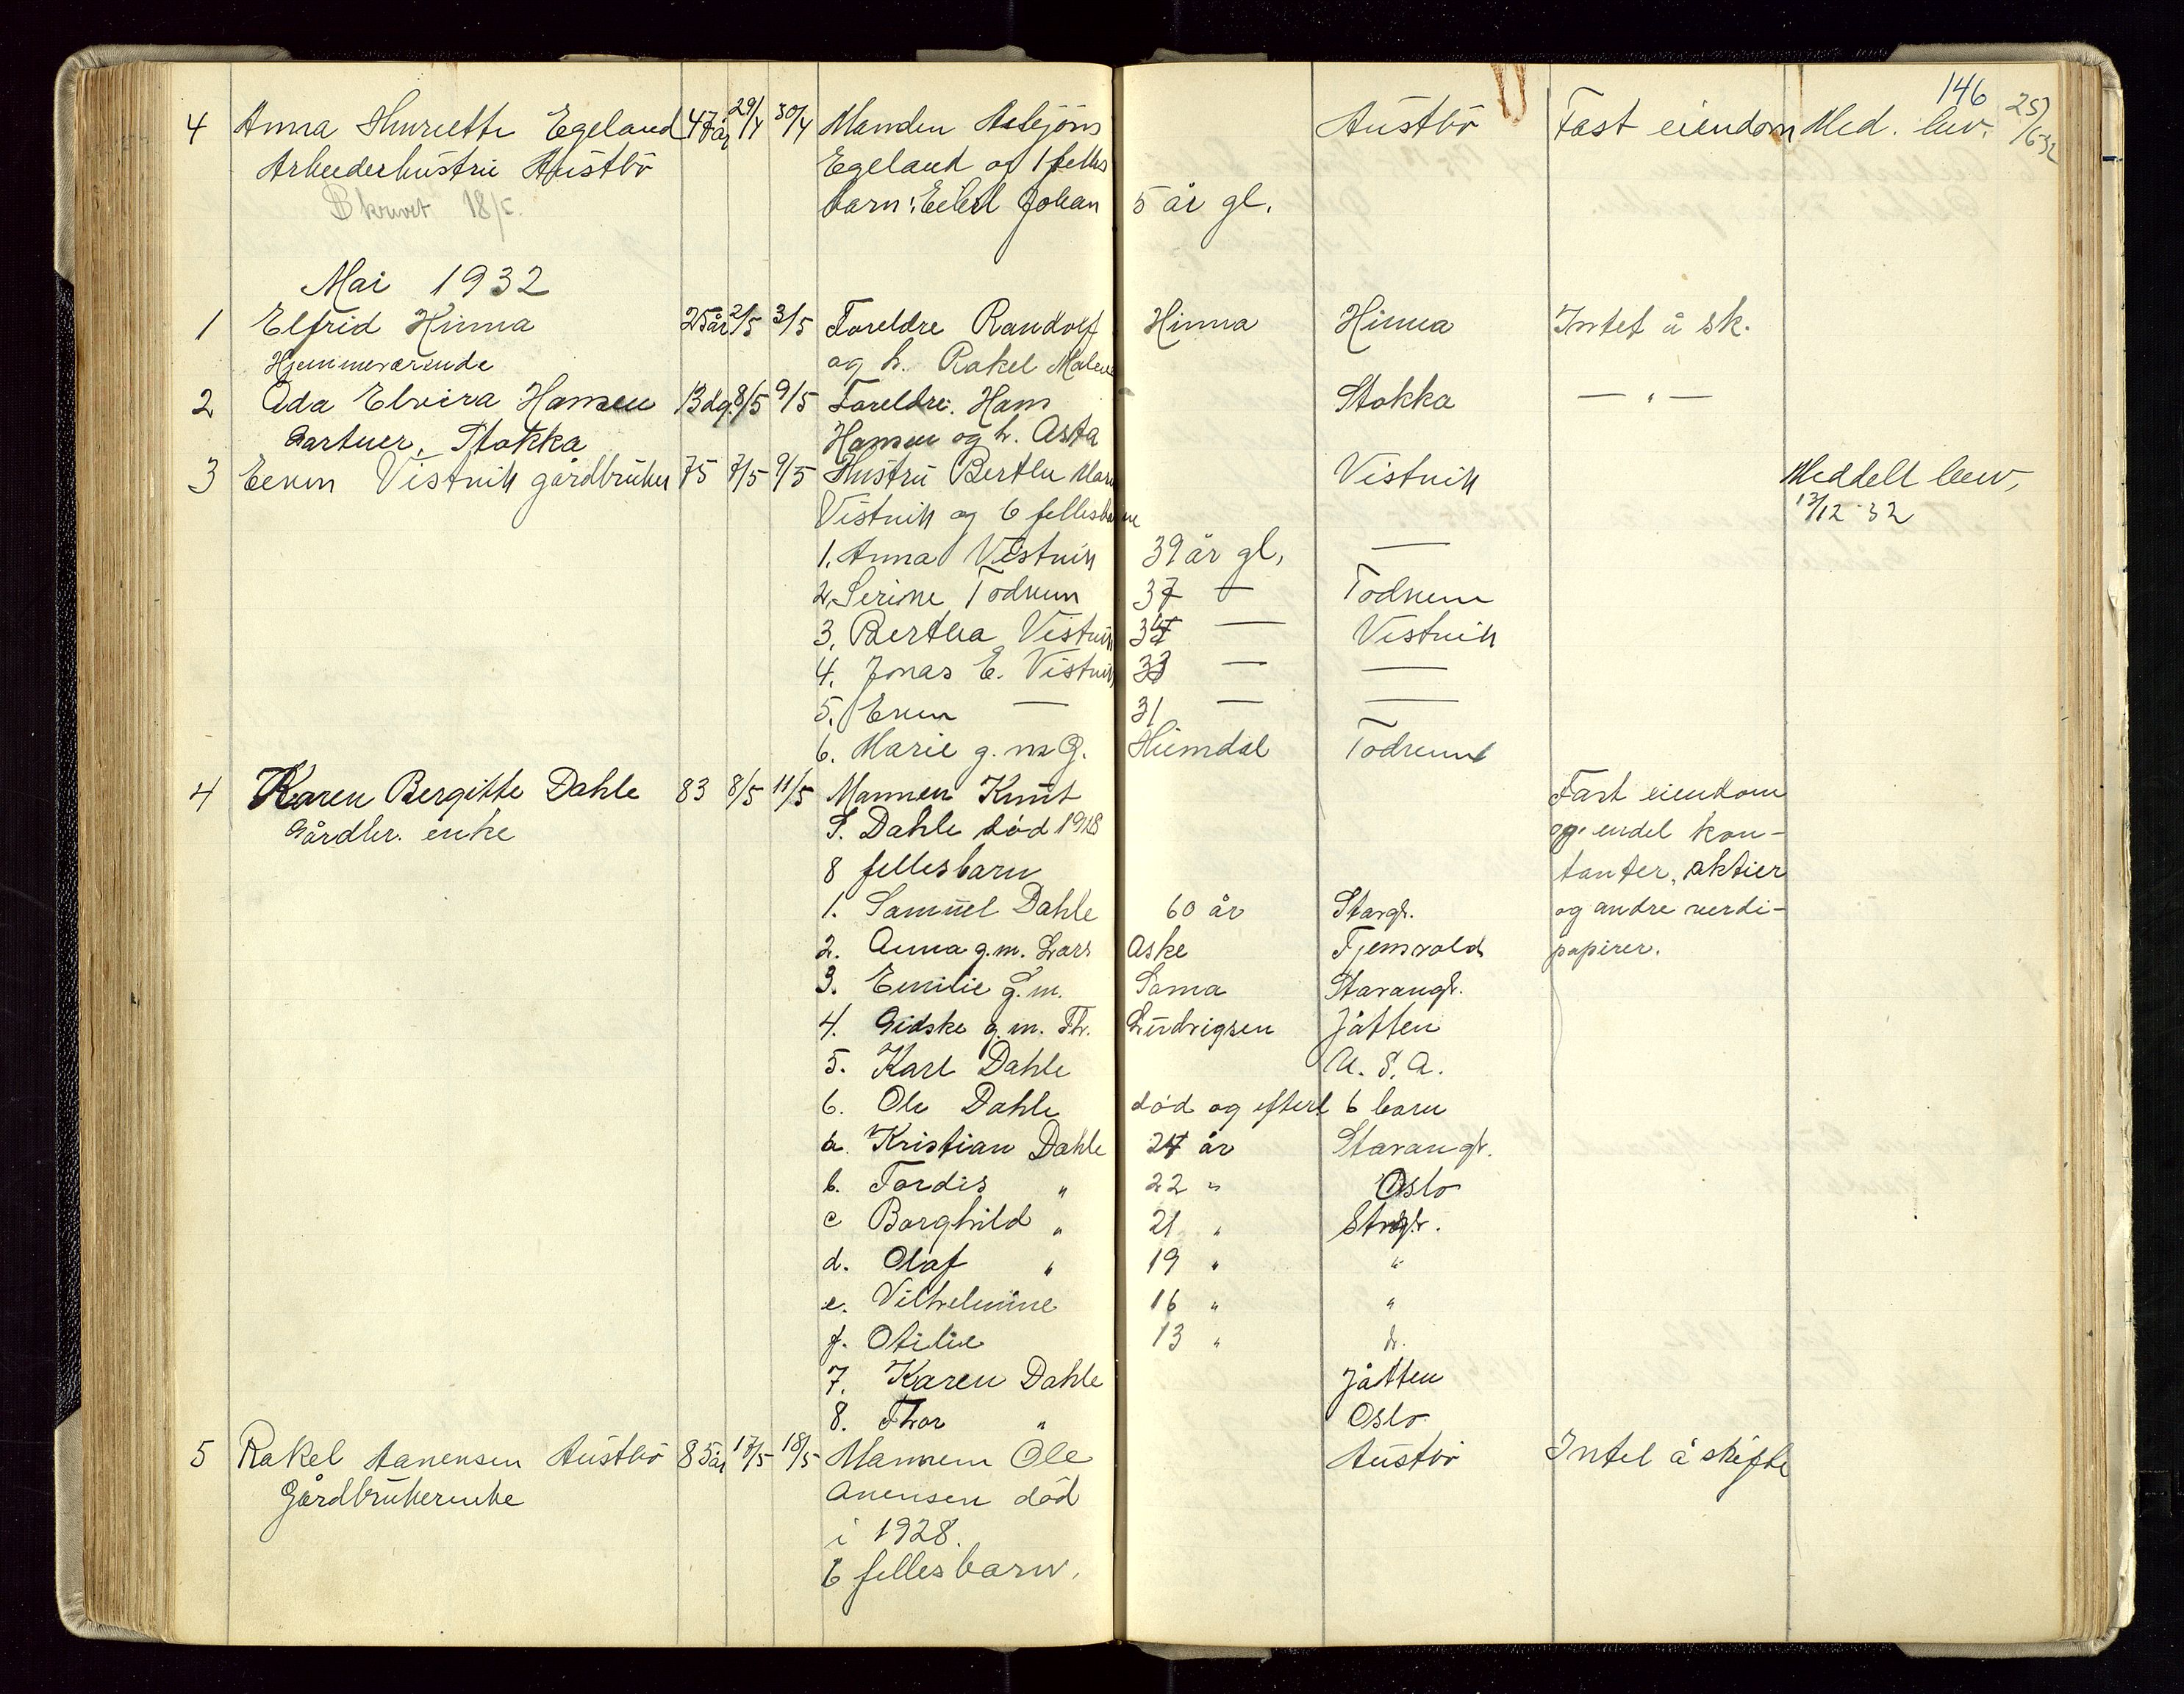 146
4 Anna Henriette Egeland 47 år 29/4 30/4 Manden Asbjörn Austbö Fast eiendom Med. bev. 25/6-32
Arbeiderhustru Austbö Egeland og 1 felles
Skrivet 18/5. barn: Eilert Johan 5 år gl.
Mai 1932
1 Elfrid Hinna 25 år 2/5 3/5 Foreldre Randolf Hinna Hinna Intet å sk.
Hjemmeværende og h. Rakel Malene
2 Ada Elvira Hansen 13 dg. 8/5 9/5 Foreldre: Hans Stokka — " —
Gartner, Stokka Hansen og h. Asta
3 Even Vistnik gårdbruker 75 7/5 9/5 Hustru Berthe Vistnik Meddelt bev.
Vistnik og 6 fellesbarn 13/12-32
1. Anna Vistnik 39 år gl. —
2. Serine Todnem 37 — Todnem
3. Bertha Vistnik — Vistnik
4. Jonas E. Vistnik 33 — —
5. Even — 31 — —
6. Marie g. m. G. Heimdal Todnem
4 Karen Bergitte Dahle 83 8/5 11/5 Mannen Knut Fast eiendom
Gårdbr. enke S. Dahle död 1928 og endel kon-
8 fellesbarn tanter, aktier
1. Samuel Dahle 60 år Stavgr. og andre verdi-
2. Anna g.m. Lars Aske Tjensvold papirer.
3. Emilie g.m. Sama Stavangr.
4. Gidske g.m. Th. Ludvigsen Jåtten
5. Karl Dahle U.S.A.
6. Ole Dahle död og efterl. 6 barn
a. Kristian Dahle 24 år Stavangr.
b. Tordis " 22 " Oslo
c Borghild " 21 " Stvgr.
d. Olaf " 19 " "
e. Vilhelmine 16 " "
f. Otilie 13 " "
7. Karen Dahle Jåtten
8. Thor " Oslo
5 Rakel Aanensen Austbö 85 år 17/5 18/5 Mannen Ole Austbö Intet å skifte
Gårdbrukerenke Anensen död
i 1928.
6 fellesbarn.